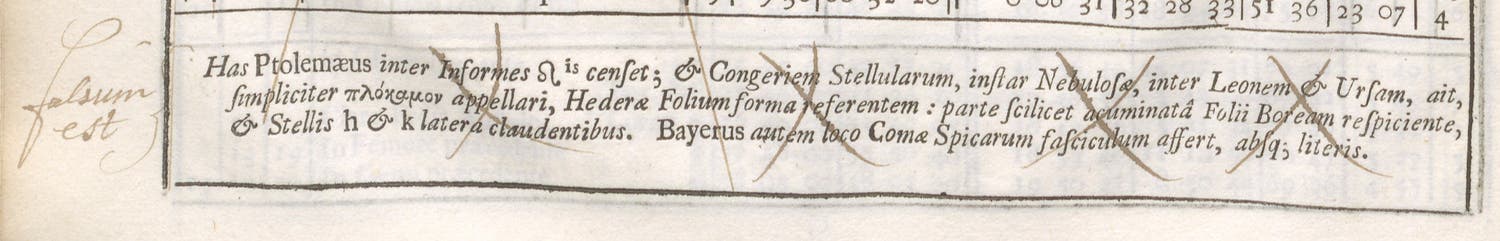 31 | 32 28 33 | 51 36 | 23 07 | 4
falsum
est
Has Ptolemæus inter Informes ♌ is censet; & Congeriem Stellularum, instar Nebulosæ, inter Leonem & Ursam, ait,
simpliciter πλόκαμον appellari, Hederæ Folium forma referentem : parte scilicet acuminatâ Folii Boream respiciente,
& Stellis h & k latera claudentibus. Bayerus autem loco Comæ Spicarum fasciculum affert, absq; literis.